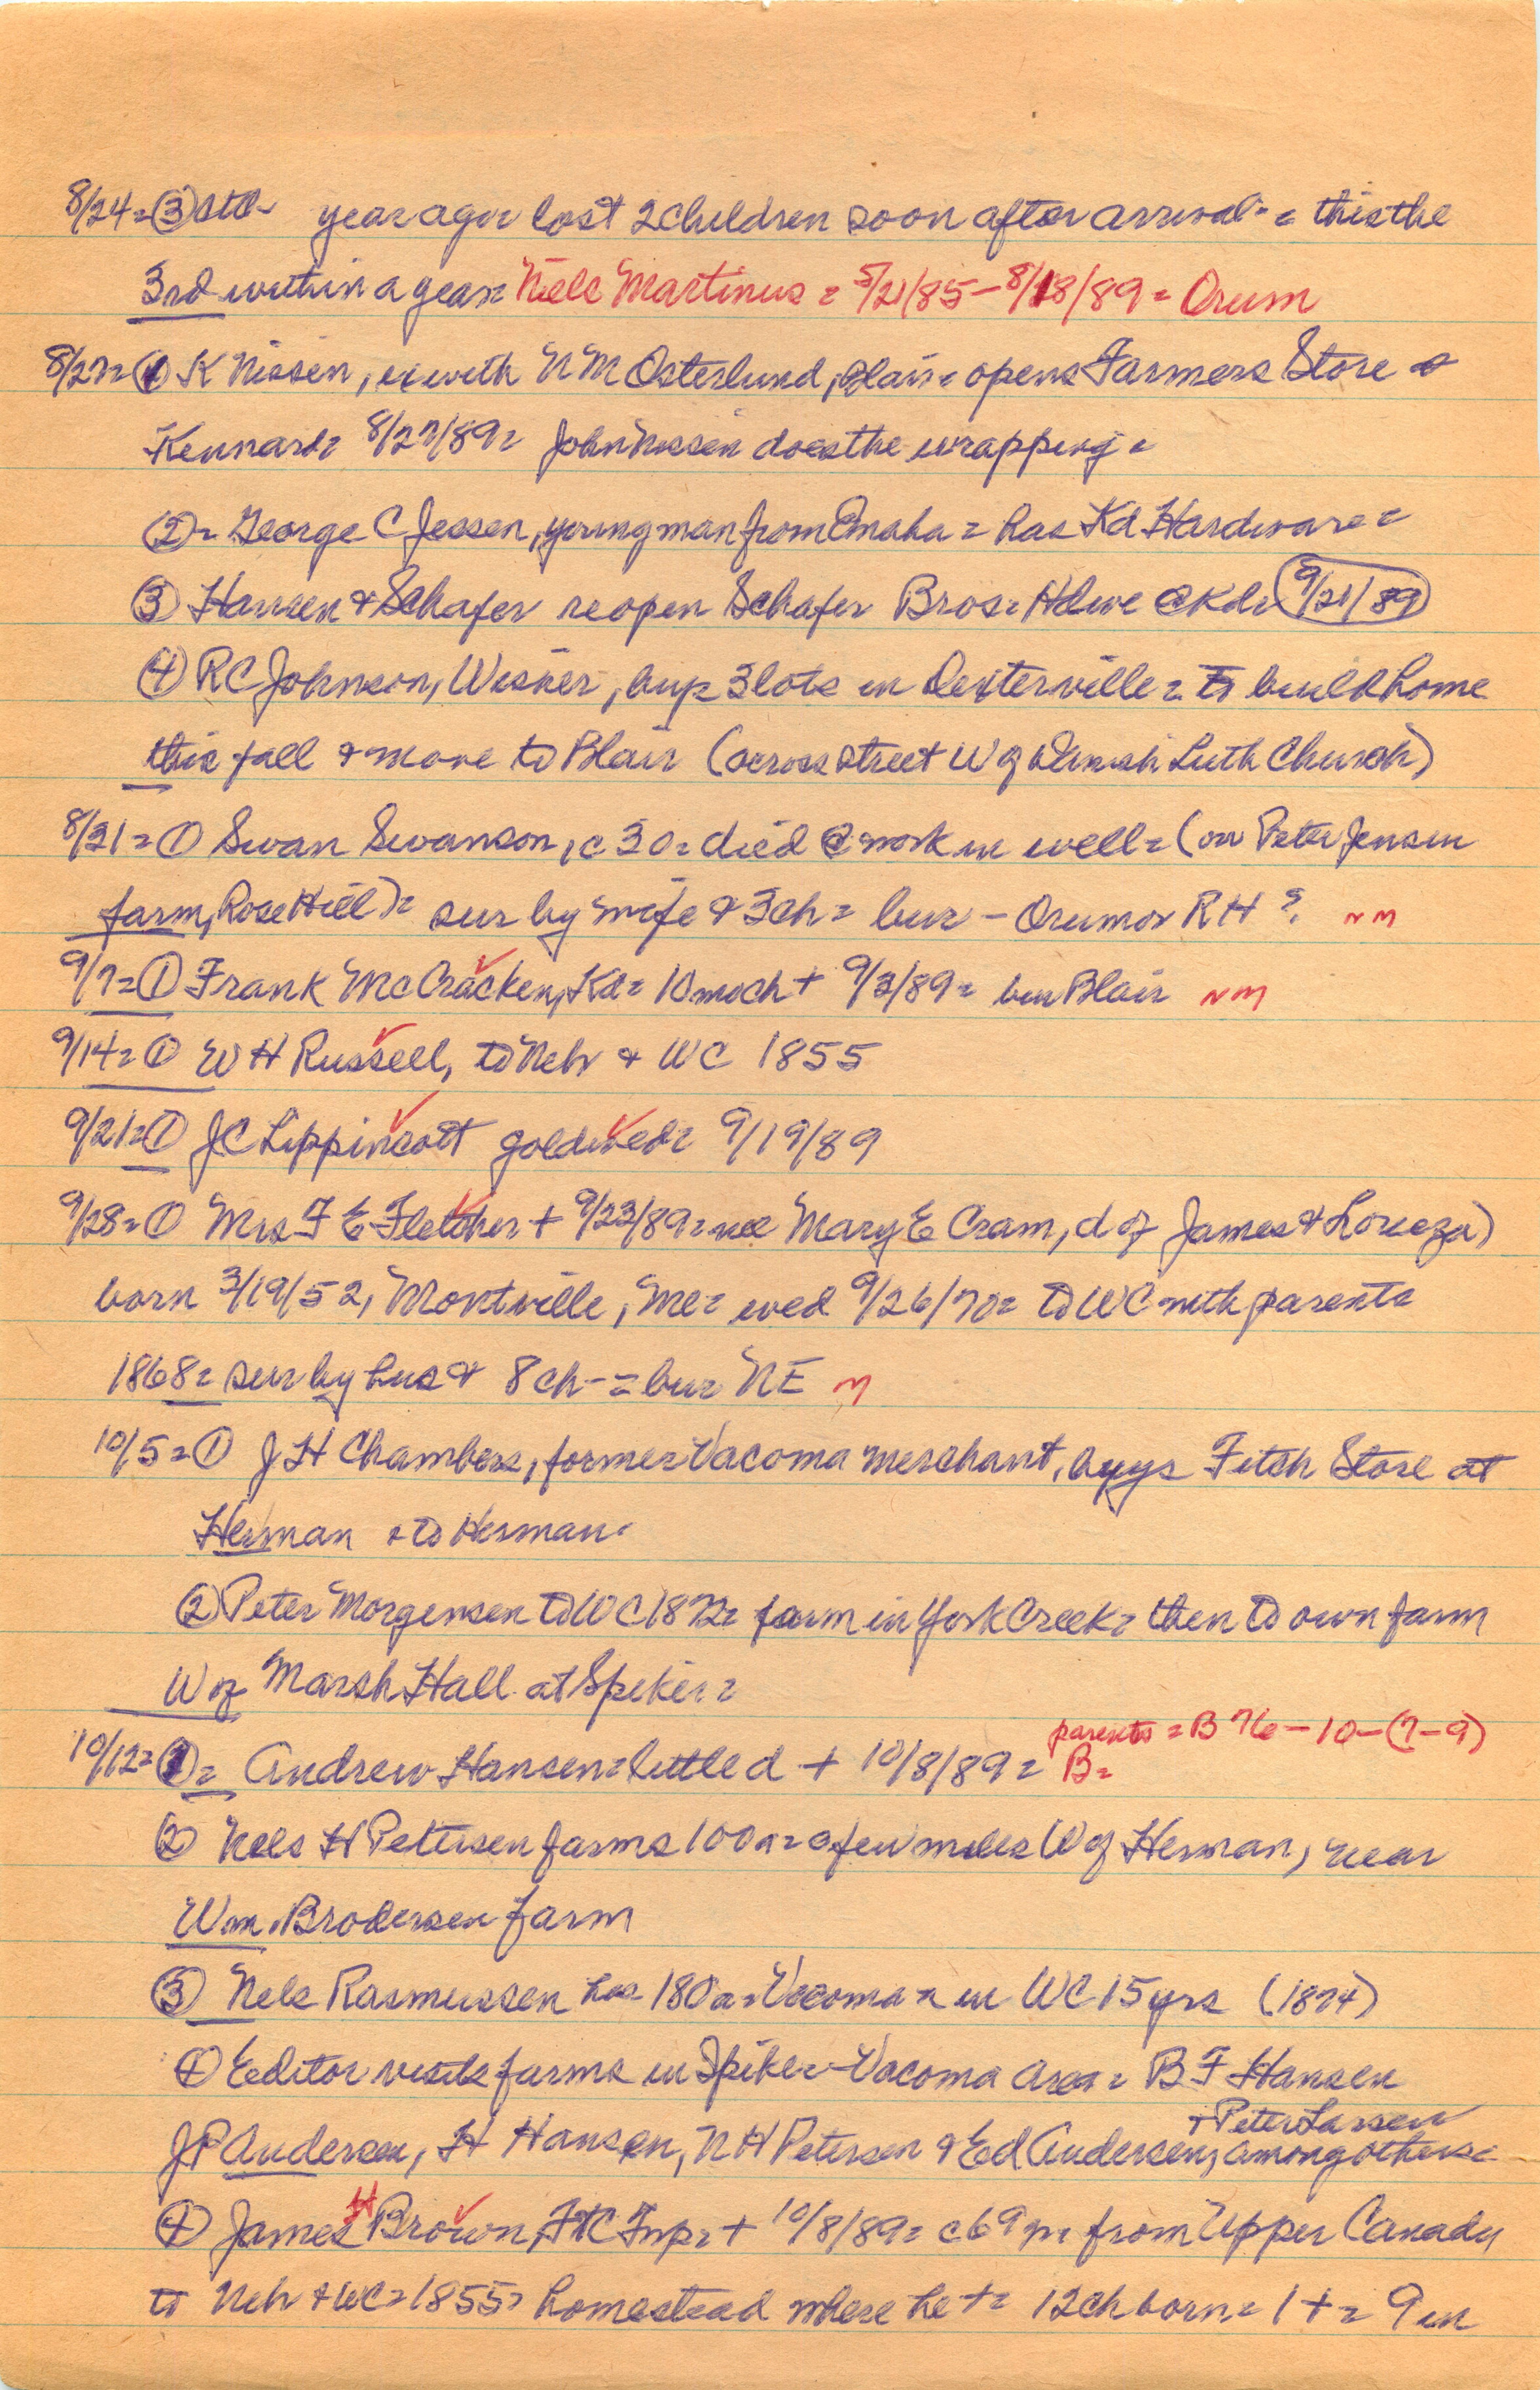 8/24 = ③ ctd - year ago = lost 2 children soon after arrival - = this the
3rd within a year = Niels Martinus = 5/21/85 - 8/18/89 = Orum
8/27 = ① K Nissen, ex with N M Osterlund, Blair = opens Farmers Store @
Kennard = 8/27/89 = John Nissen does the wrapping =
② = George C Jessen, young man from Omaha = has Kd Hardware =
③ Hansen & Schafer reopen Schafer Bros = Hdwe @ Kd = 9/21/89
④ RC Johnson, Wisner, buys 3 lots in Dexterville = to build home
this fall & move to Blair (across street W of Danish Luth Church)
8/31 = ① Swan Swanson, c 30 = died @ work in well = (on Peter Jensen
farm, Rose Hill) = sur by wife & 3 ch = bur - Orum or RH ? NM
9/7 = ① Frank McCracken, Kd = 10 mo ch + 9/2/89 = bur Blair NM
9/14 = ① W H Russell, to Neb & WC 1855
9/21 = ① JC Lippincott gold wed = 9/19/89
9/28 = ① Mrs F E Fletcher + 9/23/89 = nee Mary E Cram, d of James & Loueza)
born 3/19/52, Montville, Me = wed 9/26/70 = to WC with parents
1868 = sur by hus & 8 ch - = bur NE M
10/5 = ① J H Chambers, former Vacoma merchant, buys Fitch Store at
Herman & to Herman =
② Peter Morgensen to WC 1872 = farm in York Creek = then to own farm
W of Marsh Hall at Spiker =
parents = B 76 - 10 - (7-9)
10/12 = ① = Andrew Hansen = little d + 10/8/89 = B =
② Nels H Petersen farms 100 a = a few miles W of Herman, near
Wm. Brodersen farm
③ Nels Rasmussen has 180 a = Vacoma = in WC 15 yrs (1874)
④ Editor visits farms in Spiker - Vacoma area = B F Hansen
+ Peter Larsen
JP Andersen, H Hansen, N H Petersen & Ed Andersen, among others =
④ James H Brown, FtC Twp = + 10/8/89 = c 69 yr = from Upper Canada
to Neb & WC = 1855 = homestead where he + = 12 ch born = 1 + = 9 in